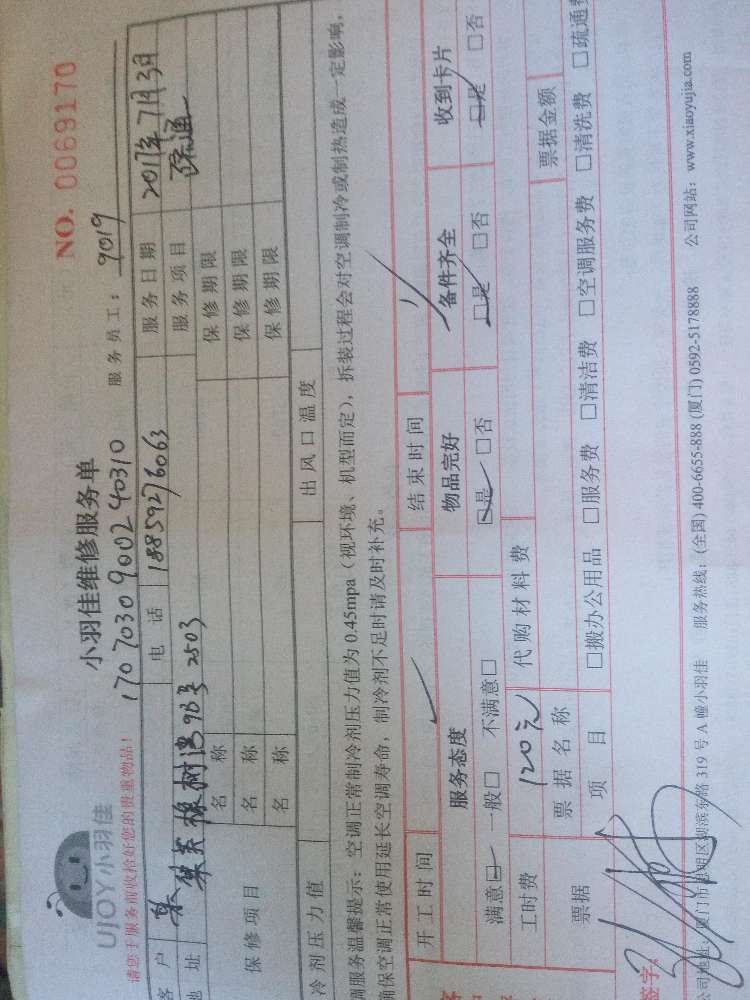 NO. 0069170
UJOY小羽佳
小羽佳维修服务单
请您于服务前收拾好您的贵重物品!
1707030900240310
服务员工: 9019
客户 电话 18859276063 服务日期 2017年7月3日
地址 集美橡树湾98号2503 服务项目 疏通
保修项目 名称 保修期限
名称 保修期限
名称 保修期限
冷剂压力值 出风口温度
调服务温馨提示:空调正常制冷剂压力值为 0.45mpa(视环境、机型而定),拆装过程会对空调制冷或制热造成一定影响,
确保空调正常使用延长空调寿命,制冷剂不足时请及时补充。
开工时间 结束时间
服务态度 物品完好 备件齐全 收到卡片
满意□ 一般□ 不满意□ □是 □否 □是 □否 □是 □否
工时费 120元 代购材料费
票据 票据名称 票据金额
项目 □搬办公用品 □服务费 □清洁费 □空调服务费 □清洗费 □疏通费
签字:
公司地址:厦门市思明区湖滨东路 319 号 A 幢小羽佳 服务热线:(全国) 400-6655-888 (厦门) 0592-5178888 公司网站:www.xiaoyujia.com